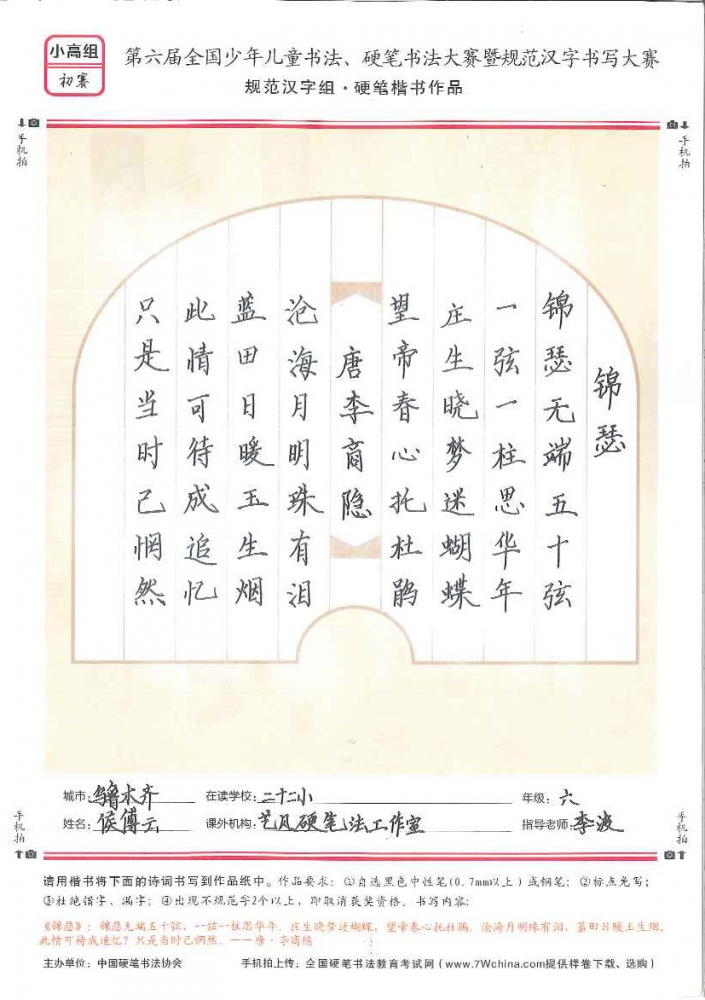 小高组
初赛
第六届全国少年儿童书法、硬笔书法大赛暨规范汉字书写大赛
规范汉字组·硬笔楷书作品
手机拍
手机拍
锦瑟
锦瑟无端五十弦
一弦一柱思华年
庄生晓梦迷蝴蝶
望帝春心托杜鹃
唐李商隐
沧海月明珠有泪
蓝田日暖玉生烟
此情可待成追忆
只是当时已惘然
城市:乌鲁木齐 在读学校:二十二小 年级:六
姓名:侯傅云 课外机构:艺凡硬笔书法工作室 指导老师:李波
手机拍
手机拍
请用楷书将下面的诗词书写到作品纸中。作品要求:①自选黑色中性笔(0.7mm以上)或钢笔;②标点免写;
③杜绝错字、漏字;④出现不规范字2个以上,即取消获奖资格。书写内容:
《锦瑟》:锦瑟无端五十弦,一弦一柱思华年。庄生晓梦迷蝴蝶,望帝春心托杜鹃。沧海月明珠有泪,蓝田日暖玉生烟。
此情可待成追忆?只是当时已惘然。——唐·李商隐
主办单位:中国硬笔书法协会 手机拍上传:全国硬笔书法教育考试网(www.7Wchina.com提供样卷下载、选购)